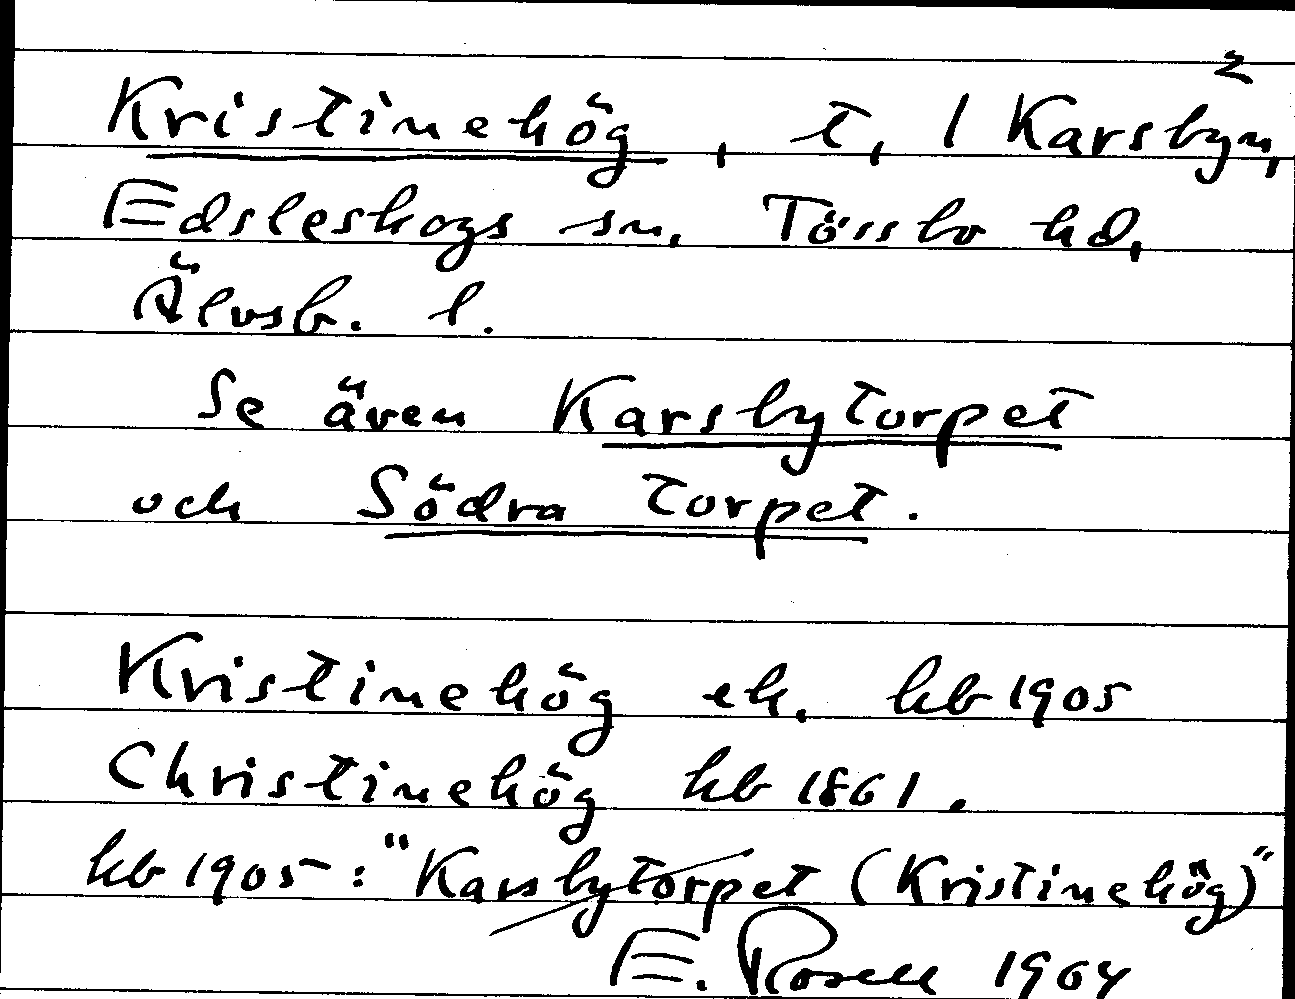 Kristinehög, t, 1 Karsbyn, 2
Edsleskogs sn, Tössbo hd,
Älvsb. l.
Se även Karsbytorpet
och Södra torpet.
Kristinehög ek. hb 1905
Christinehög hb 1861.
hb 1905: "Karsbytorpet (Kristinehög)"
E. Rosell 1964